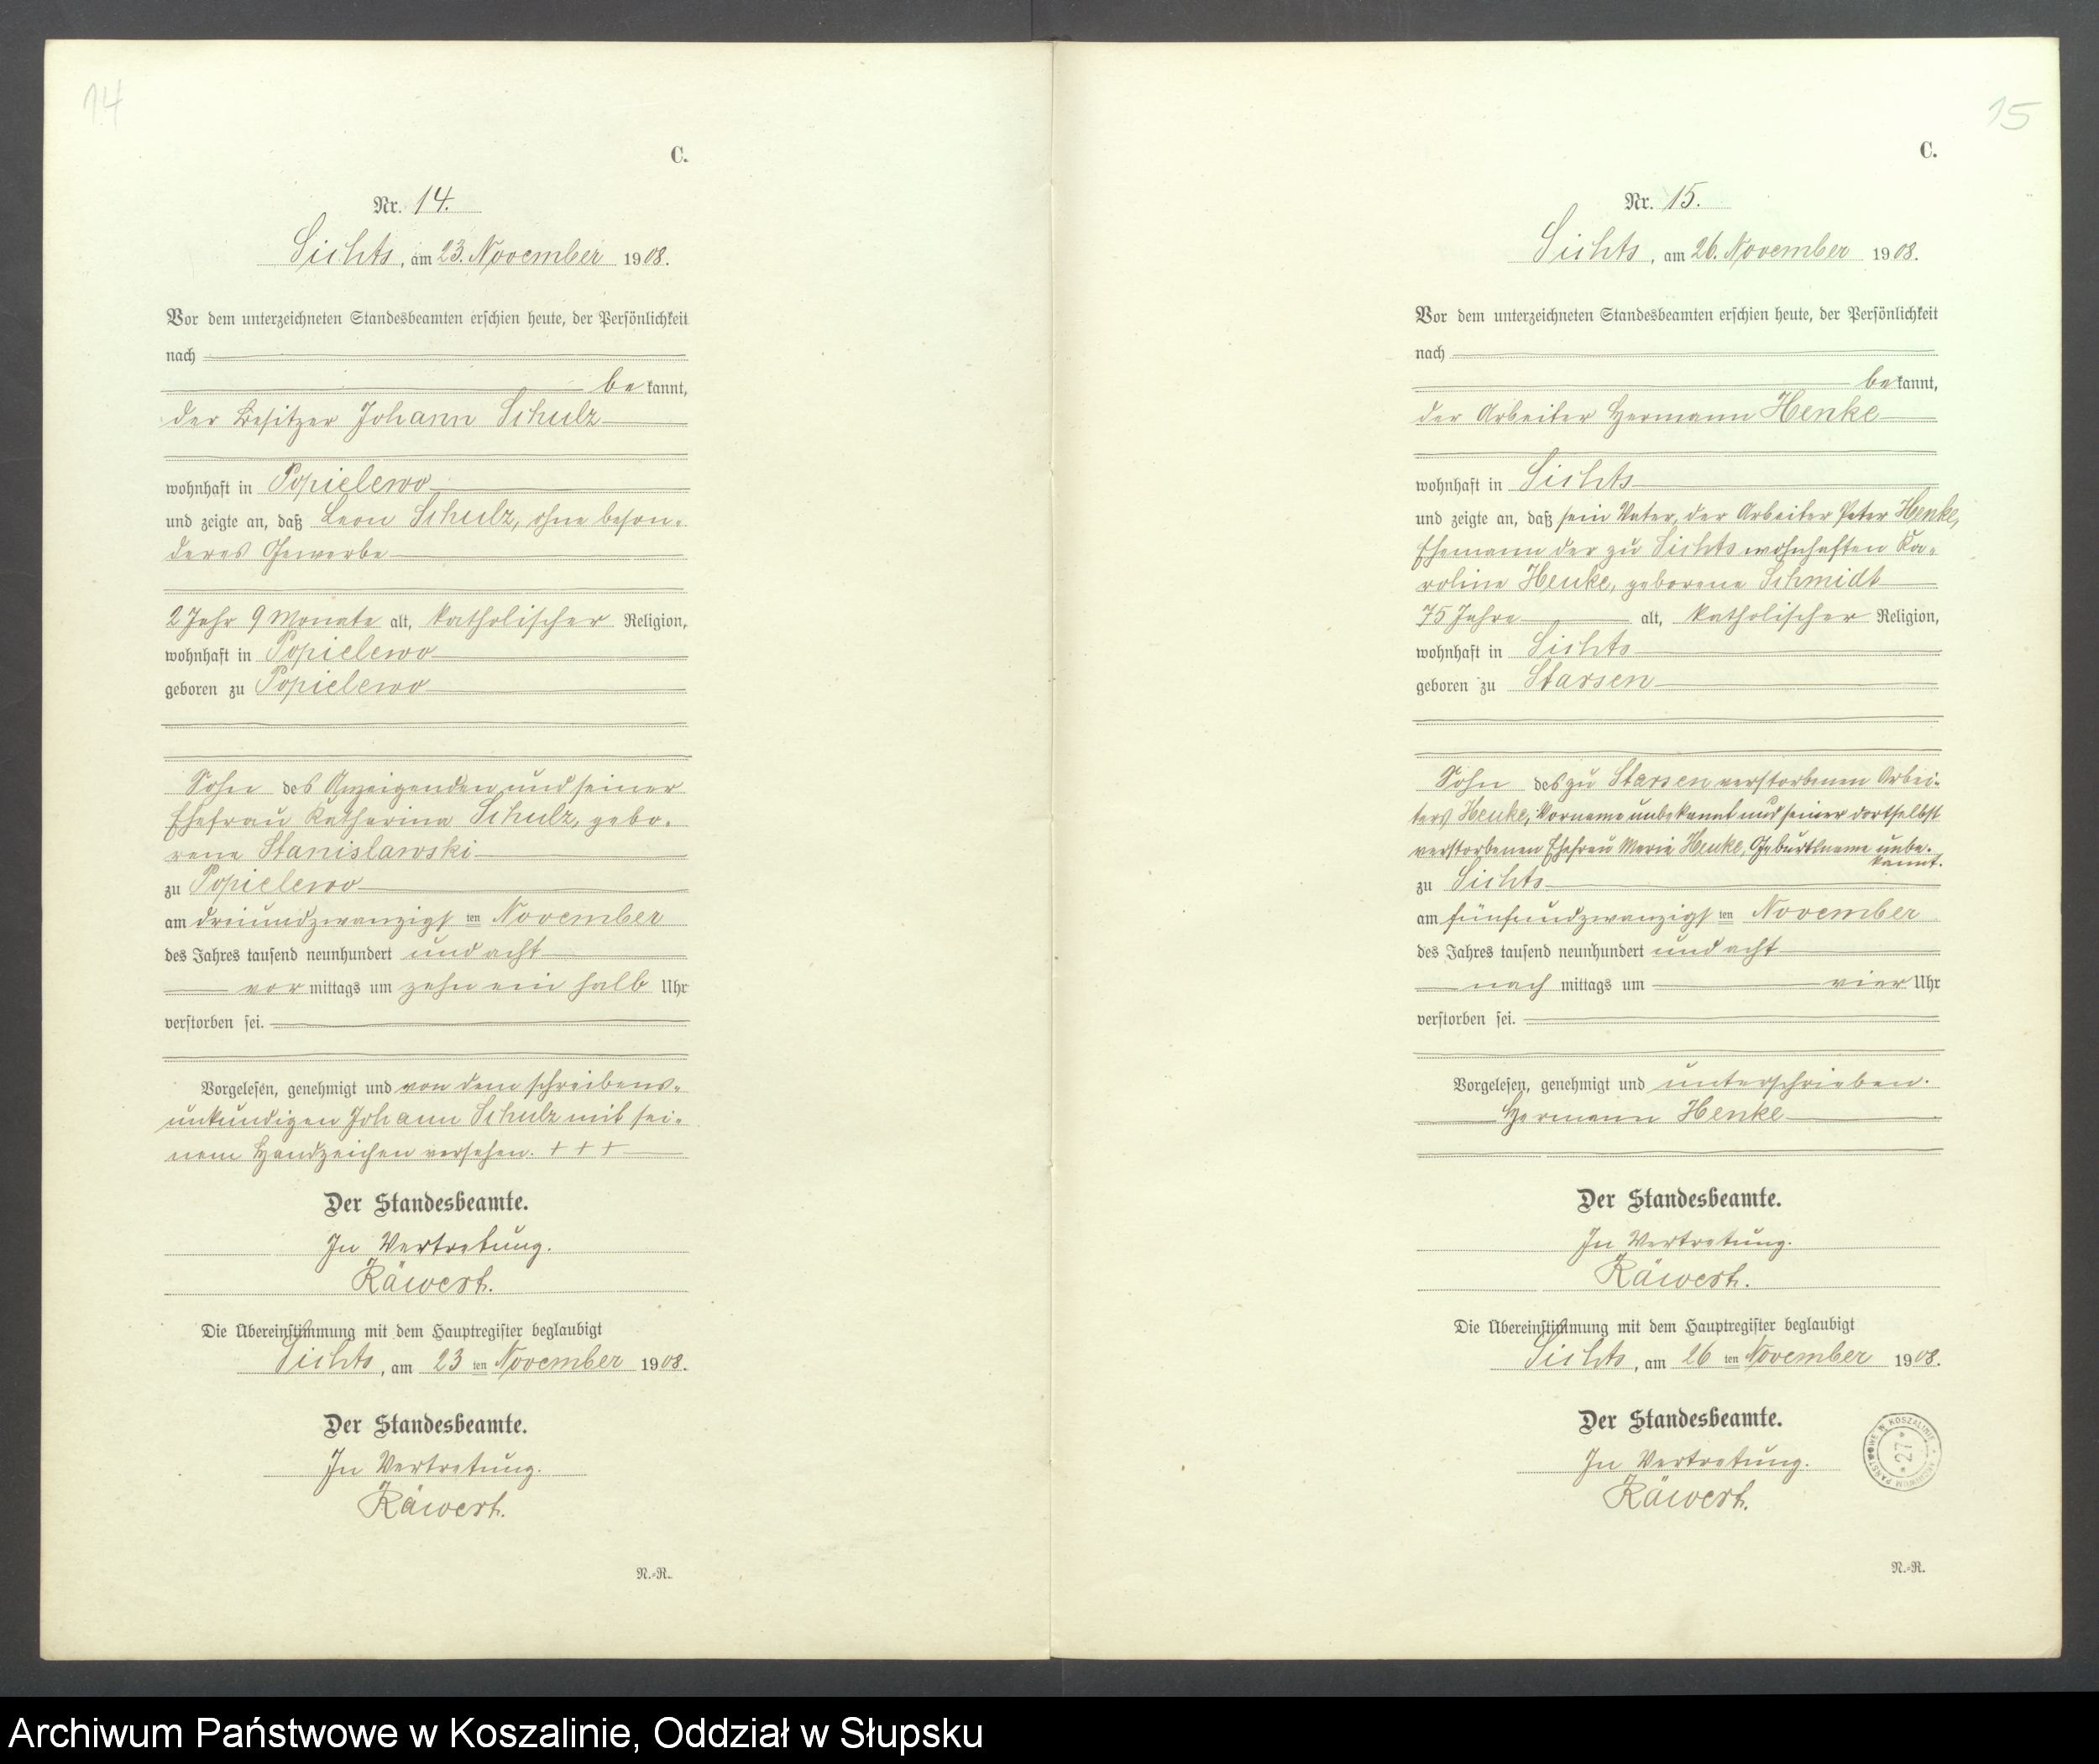 14
C.
Nr. 14.
Sichts, am 23. November 1908.
Vor dem unterzeichneten Standesbeamten erschien heute, der Persönlichkeit
nach
be kannt,
der Besitzer Johann Schulz
wohnhaft in Popielewo
und zeigte an, daß Leon Schulz, ohne beson-
deres Gewerbe
2 Jahr 9 Monate alt, katholischer Religion,
wohnhaft in Popielewo
geboren zu Popielewo
Sohn des Anzeigenden und seiner
Ehefrau Katharina Schulz, gebo-
rene Stanislawski
zu Popielewo
am dreiundzwanzigsten November
des Jahres tausend neunhundert und acht
vor mittags um zehn ein halb Uhr
verstorben sei.
Vorgelesen, genehmigt und von dem schreibens-
unkundigen Johann Schulz mit sei-
nem Handzeichen versehen. + + +
Der Standesbeamte.
In Vertretung.
Räwert.
Die Übereinstimmung mit dem Hauptregister beglaubigt
Sichts, am 23 ten November 1908.
Der Standesbeamte.
In Vertretung.
Räwert.
N.-R.
15
C.
Nr. 15.
Sichts, am 26. November 1908.
Vor dem unterzeichneten Standesbeamten erschien heute, der Persönlichkeit
nach
be kannt,
der Arbeiter Hermann Henke
wohnhaft in Sichts
und zeigte an, daß sein Vater, der Arbeiter Peter Henke,
Ehemann der zu Sichts wohnhaften Ka-
roline Henke, geborene Schmidt
75 Jahre alt, katholischer Religion,
wohnhaft in Sichts
geboren zu Starsen
Sohn des zu Starsen verstorbenen Arbei-
ters Henke, Vorname unbekannt und seiner dortselbst
verstorbenen Ehefrau Marie Henke, Geburtsname unbe-
kannt.
zu Sichts
am fünfundzwanzigsten November
des Jahres tausend neunhundert und acht
nach mittags um vier Uhr
verstorben sei.
Vorgelesen, genehmigt und unterschrieben.
Hermann Henke
Der Standesbeamte.
In Vertretung.
Räwert.
Die Übereinstimmung mit dem Hauptregister beglaubigt
Sichts, am 26 ten November 1908.
Der Standesbeamte.
In Vertretung.
Räwert.
ARCHIWUM PAŃSTWOWE W KOSZALINIE
* 27 *
N.-R.
Archiwum Państwowe w Koszalinie, Oddział w Słupsku